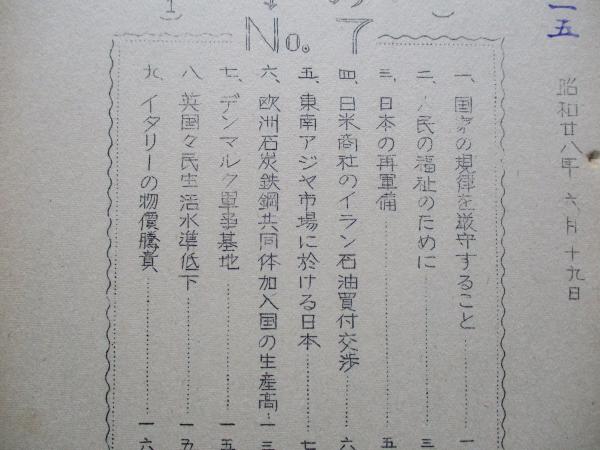 No. 7
一五
昭和廿八年六月十九日
一、国家の規律を厳守すること………一
二、人民の福祉のために………三
三、日本の再軍備………五
四、日米商社のイラン石油買付交渉………六
五、東南アジヤ市場に於ける日本………七
六、欧洲石炭鉄鋼共同体加入国の生産高………一三
七、デンマルク軍事基地………一五
八、英国々民生活水準低下………一九
九、イタリーの物價騰貴………一六